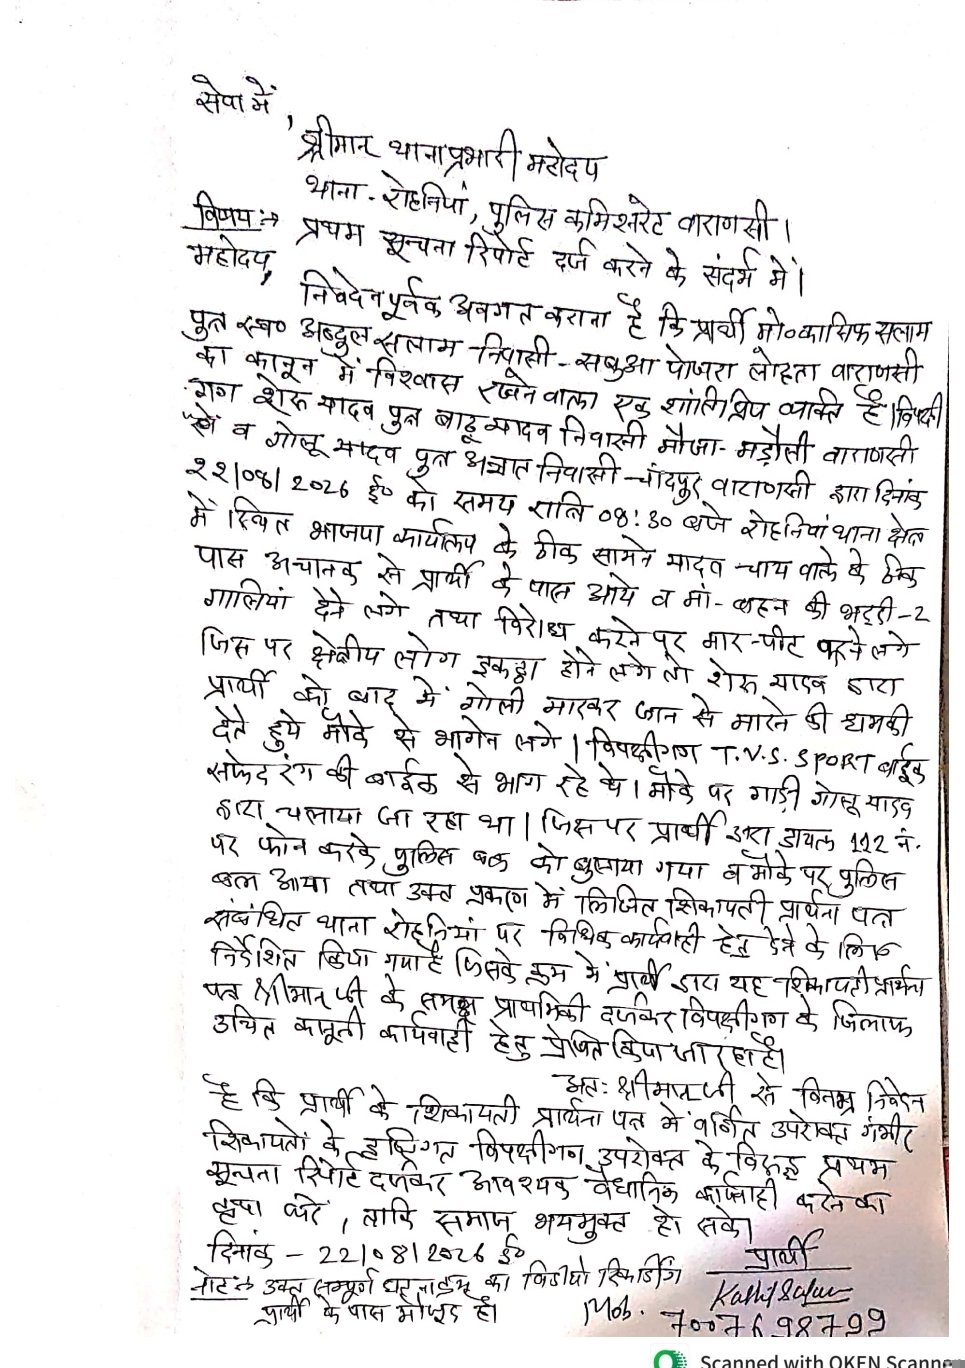 सेवा में,
श्रीमान् थाना प्रभारी महोदय
थाना - रोहनियां, पुलिस कमिश्नरेट वाराणसी।
विषय :→ प्रथम सूचना रिपोर्ट दर्ज करने के संदर्भ में।
महोदय,
निवेदन पूर्वक अवगत कराना है कि प्रार्थी मो० कासिफ सलाम
पुत्र स्व० अब्दुल सलाम निवासी - लोहता वाराणसी
का कानून में विश्वास रखने वाला एक शांतिप्रिय व्यक्ति है। विपक्षी
गण शेरू यादव पुत्र यादव निवासी मौजा - मड़ौली वाराणसी
व गोलू यादव पुत्र अज्ञात निवासी - चांदपुर वाराणसी द्वारा दिनांक
22/08/2026 ई० को समय रात्रि 08:30 बजे रोहनियां थाना क्षेत्र
में स्थित भाजपा कार्यालय के ठीक सामने यादव चाय वाले के ठीक
पास अचानक से प्रार्थी के पास आये व मां - बहन की भद्दी - 2
गालियां देने लगे तथा विरोध करने पर मार - पीट करने लगे
जिस पर क्षेत्रीय लोग इकट्ठा होने लगे तो शेरू यादव द्वारा
प्रार्थी को बाद में गोली मारकर जान से मारने की धमकी
देते हुये मौके से भागने लगे। विपक्षीगण T.V.S. SPORT बाईक
सफेद रंग की बाईक से भाग रहे थे। मौके पर गाड़ी गोलू यादव
द्वारा चलाया जा रहा था। जिस पर प्रार्थी द्वारा डायल 112 नं.
पर फोन करके पुलिस बल को बुलाया गया व मौके पर पुलिस
बल आया तथा उक्त प्रकरण में लिखित शिकायती प्रार्थना पत्र
संबंधित थाना रोहनियां पर विधिक कार्यवाही हेतु देने के लिए
निर्देशित किया गया है जिसके क्रम में प्रार्थी द्वारा यह शिकायती प्रार्थना
पत्र श्रीमान जी के समक्ष प्राथमिकी दर्जकर विपक्षीगण के खिलाफ
उचित कानूनी कार्यवाही हेतु प्रेषित किया जा रहा है।
अतः श्रीमान जी से विनम्र निवेदन
है कि प्रार्थी के शिकायती प्रार्थना पत्र में वर्णित उपरोक्त गंभीर
शिकायतों के दृष्टिगत विपक्षीगण उपरोक्त के विरूद्ध प्रथम
सूचना रिपोर्ट दर्जकर आवश्यक वैधानिक कार्यवाही करने का
कृपा करें, ताकि समाज भयमुक्त हो सके।
दिनांक - 22/08/2026 ई०
प्रार्थी
नोट :→ उक्त सम्पूर्ण घटनाक्रम का विडीयो रिकार्डिंग
प्रार्थी के पास मौजूद है।
Kashif Salam
Mob. 7007698799
Scanned with OKEN Scanner